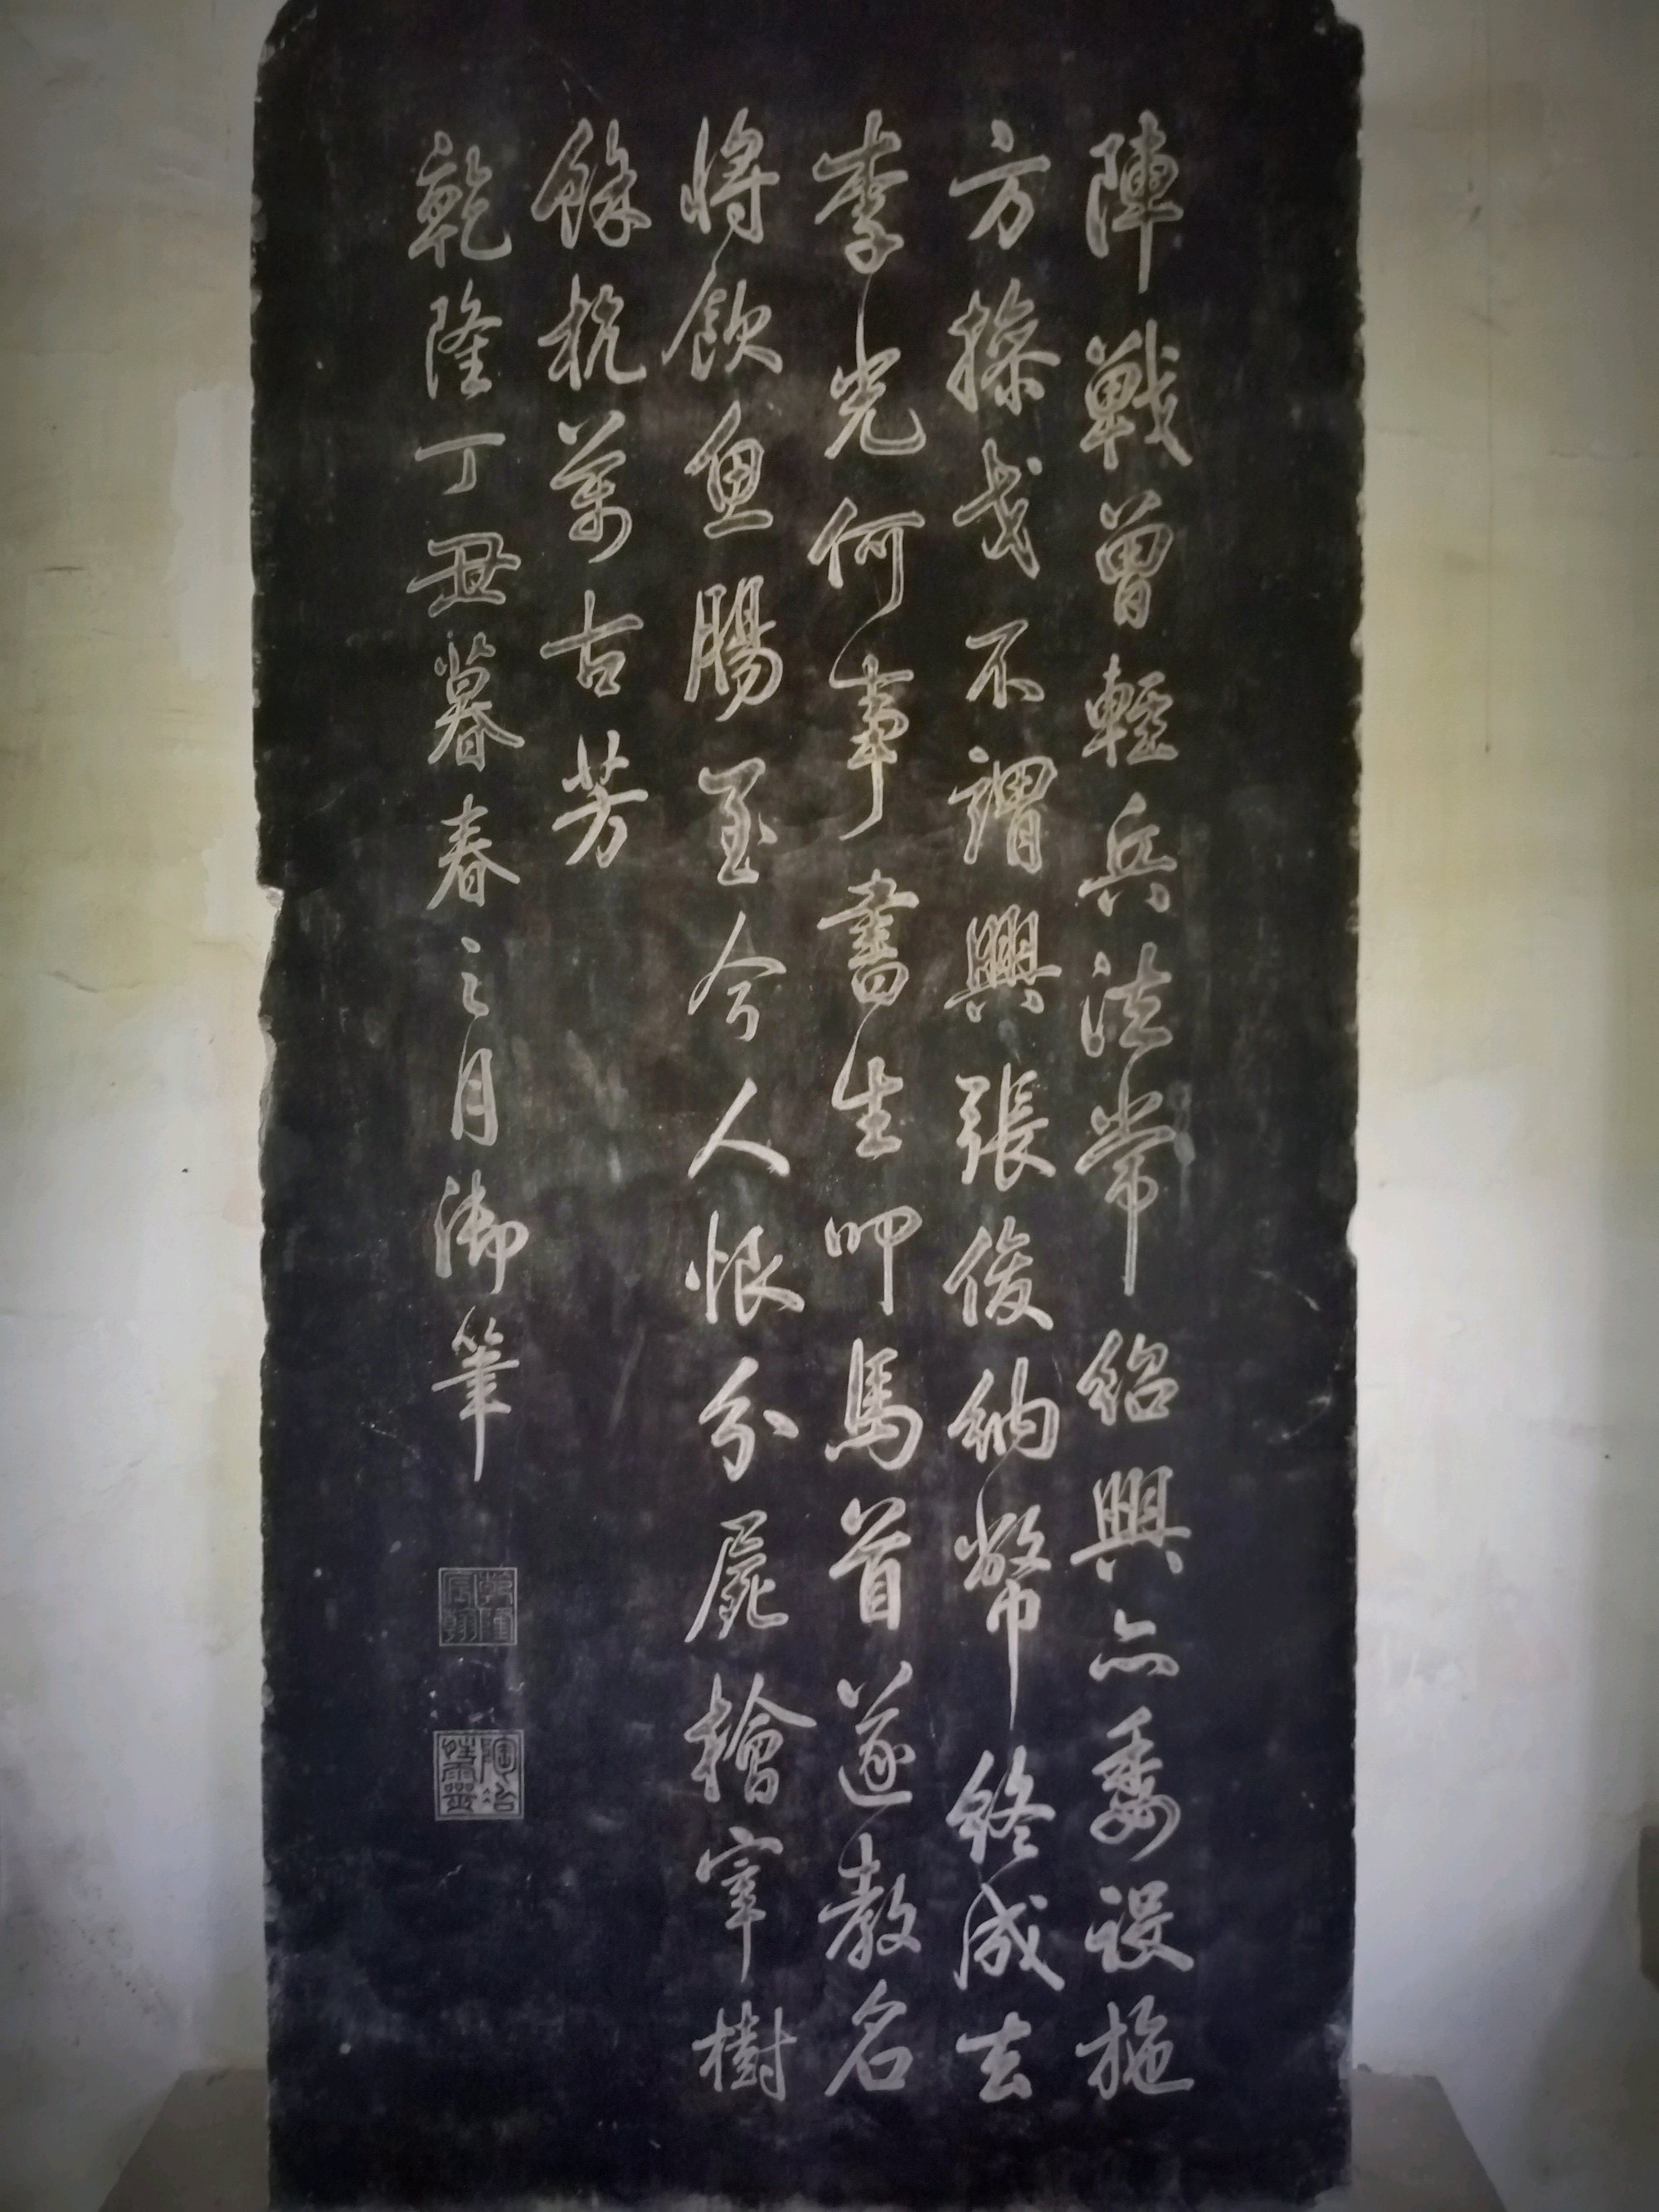 陣戰曾輕兵法常紹興亦委設施
方操戈不謂興張俊納幣終成去
李光何事書生叩馬首遂教名
將飲魚腸至今人恨分屍檜宰樹
餘杭萬古芳
乾隆丁丑暮春之月御筆
乾隆宸翰
陶冶性靈